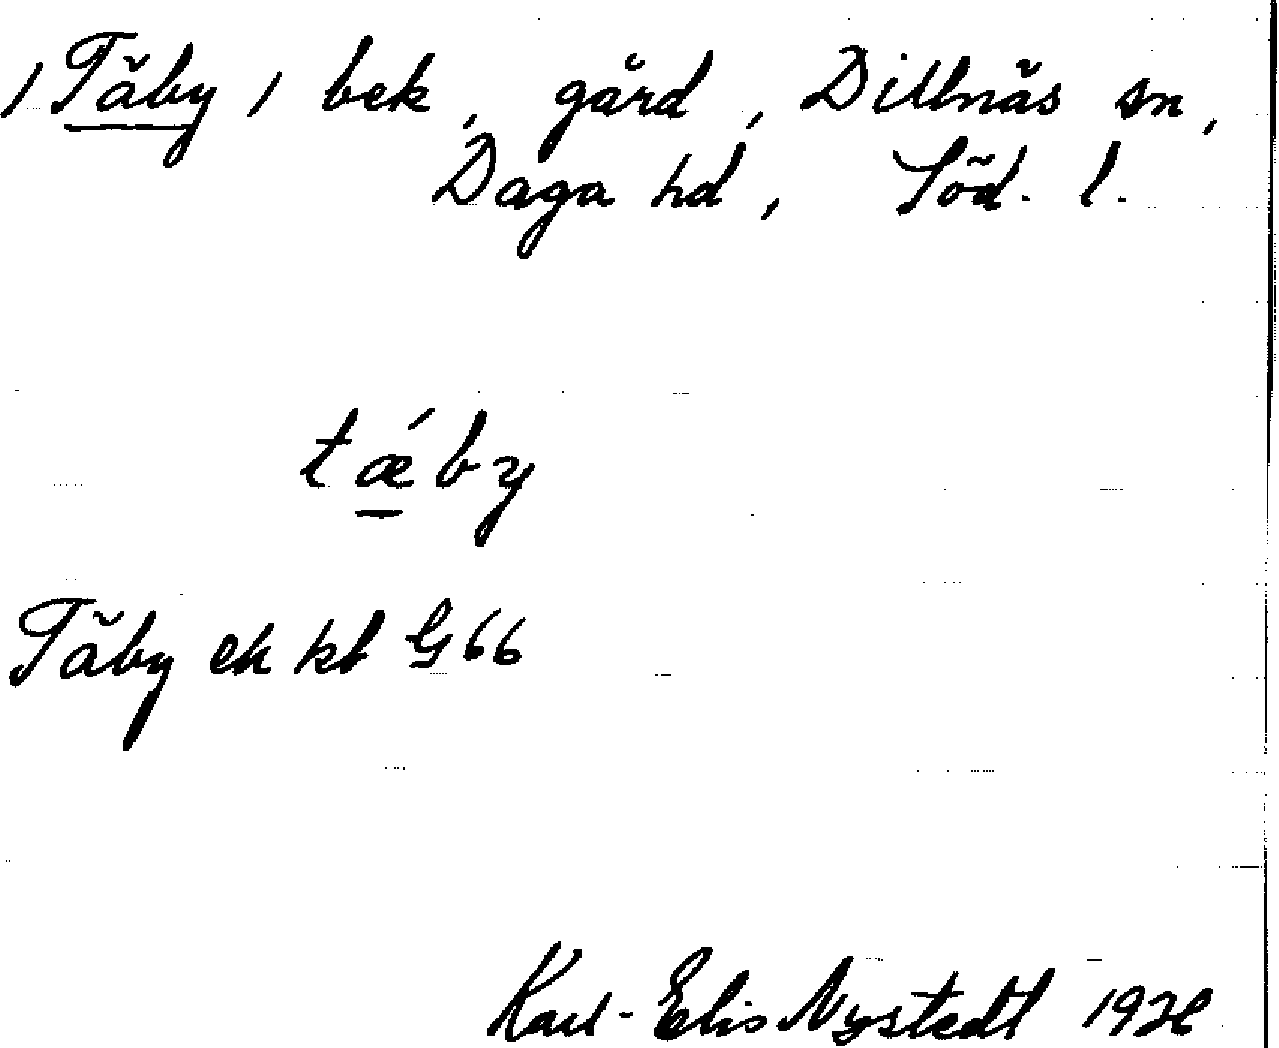 / Täby / bek, gård, Dillnäs sn,
Daga hd, Söd. l.
tǽby
Täby ek kb G 66
Karl-Elis Nystedt